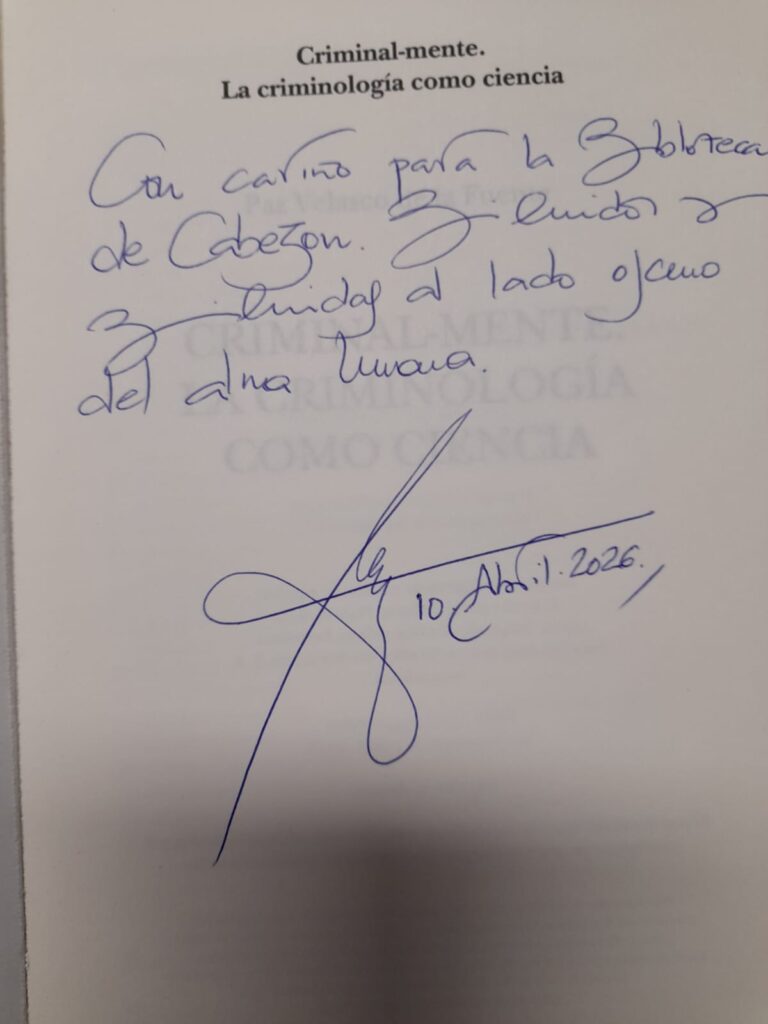 Criminal-mente.
La criminología como ciencia
Con cariño para la Biblioteca
de Cabezón. Bienvenidos y
Bienvenidas al lado oscuro
del alma humana.
10 Abril. 2026.
Paz Velasco de la Fuente
CRIMINAL-MENTE.
LA CRIMINOLOGÍA
COMO CIENCIA